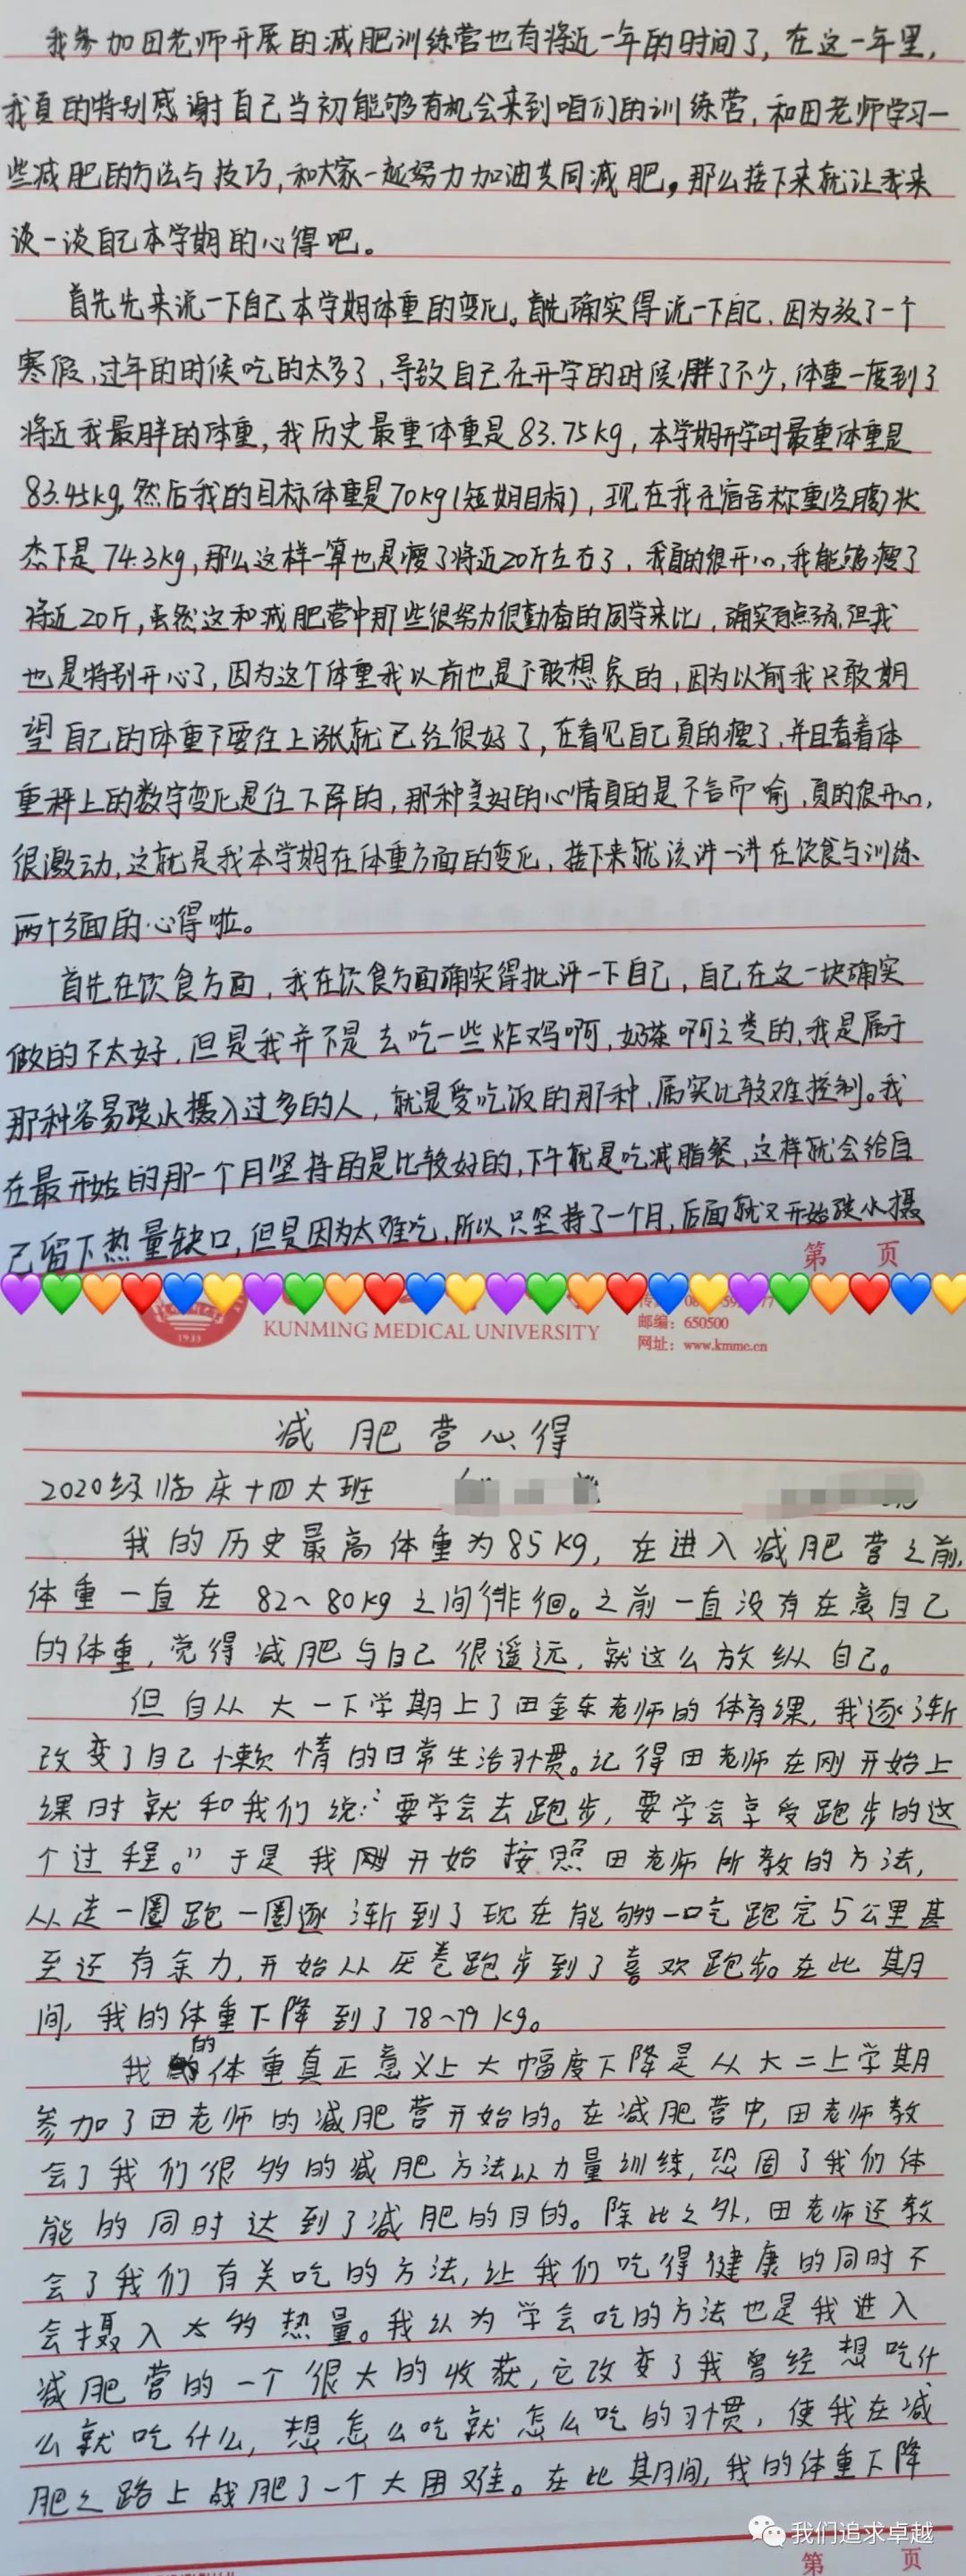 我参加田老师开展的减肥训练营也有将近一年的时间了，在这一年里，
我真的特别感谢自己当初能够有机会来到咱们的训练营，和田老师学习一
些减肥的方法与技巧，和大家一起努力加油共同减肥，那么接下来就让我来
谈一谈自己本学期的心得吧。
首先先来说一下自己本学期体重的变化。首先确实得说一下自己，因为放了一个
寒假，过年的时候吃的太多了，导致自己在开学的时候胖了不少，体重一度到了
将近我最胖的体重，我历史最重体重是83.75kg，本学期开学时最重体重是
83.45kg，然后我的目标体重是70kg(短期目标)，现在我在宿舍称重(空腹)状
态下是74.3kg，那么这样一算也是瘦了将近20斤左右了，我真的很开心，我能够瘦了
将近20斤，虽然这和减肥营中那些很努力很勤奋的同学来比，确实有点弱，但我
也是特别开心了，因为这个体重我以前也是不敢想象的，因为以前我只敢期
望自己的体重不要往上涨就已经很好了，在看见自己真的瘦了，并且看着体
重秤上的数字变化是往下降的，那种美好的心情真的是不言而喻，真的很开心，
很激动，这就是我本学期在体重方面的变化，接下来就该讲一讲在饮食与训练
两个方面的心得啦。
首先在饮食方面，我在饮食方面确实得批评一下自己，自己在这一块确实
做的不太好，但是我并不是去吃一些炸鸡啊，奶茶啊之类的，我是属于
那种容易碳水摄入过多的人，就是爱吃饭的那种，属实比较难控制。我
在最开始的那一个月坚持的是比较好的，下午就是吃减脂餐，这样就会给自
己留下热量缺口，但是因为太难吃，所以只坚持了一个月，后面就又开始碳水摄
第 页
1933
KUNMING MEDICAL UNIVERSITY
邮编：650500
网址：www.kmmc.cn
减肥营心得
2020级临床十四大班
我的历史最高体重为85kg，在进入减肥营之前，
体重一直在82~80kg之间徘徊。之前一直没有在意自己
的体重，觉得减肥与自己很遥远，就这么放纵自己。
但自从大一下学期上了田金东老师的体育课，我逐渐
改变了自己懒惰的日常生活习惯。记得田老师在刚开始上
课时就和我们说："要学会去跑步，要学会享受跑步的这
个过程。"于是我刚开始按照田老师所教的方法，
从走一圈跑一圈逐渐到了现在能够一口气跑完5公里甚
至还有余力，开始从厌卷跑步到了喜欢跑步。在此期
间，我的体重下降到了78~79kg。
我的体重真正意义上大幅度下降是从大二上学期
参加了田老师的减肥营开始的。在减肥营中，田老师教
会了我们很多的减肥方法以力量训练，巩固了我们体
能的同时达到了减肥的目的。除此之外，田老师还教
会了我们有关吃的方法，让我们吃得健康的同时不
会摄入太多热量。我认为学会吃的方法也是我进入
减肥营的一个很大的收获，它改变了我曾经想吃什
么就吃什么，想怎么吃就怎么吃的习惯，使我在减
肥之路上战肥了一个大困难。在此期间，我的体重下降
我们追求卓越
第 页